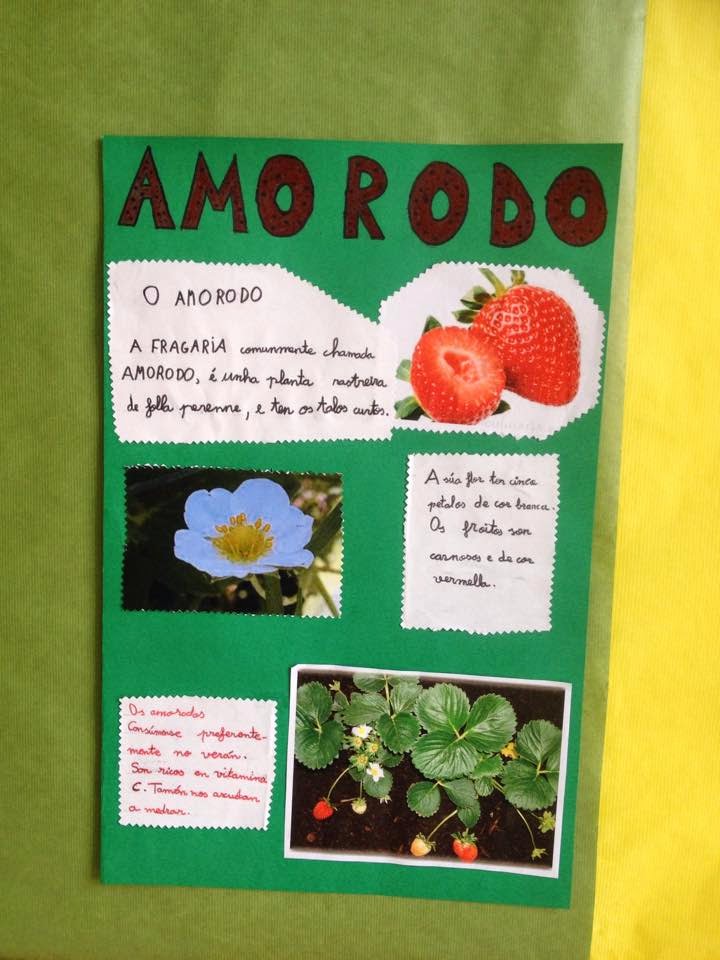 AMORODO
O AMORODO
A FRAGARIA comunmente chamada
AMORODO, é unha planta rastreira
de folla perenne, e ten os talos curtos.
A súa flor ten cinco
petalos de cor branca.
Os froitos son
carnosos e de cor
vermella.
Os amorodos
Consúmense preferente-
mente no verán.
Son ricos en vitamina
C. Tamén nos axudan
a medrar.